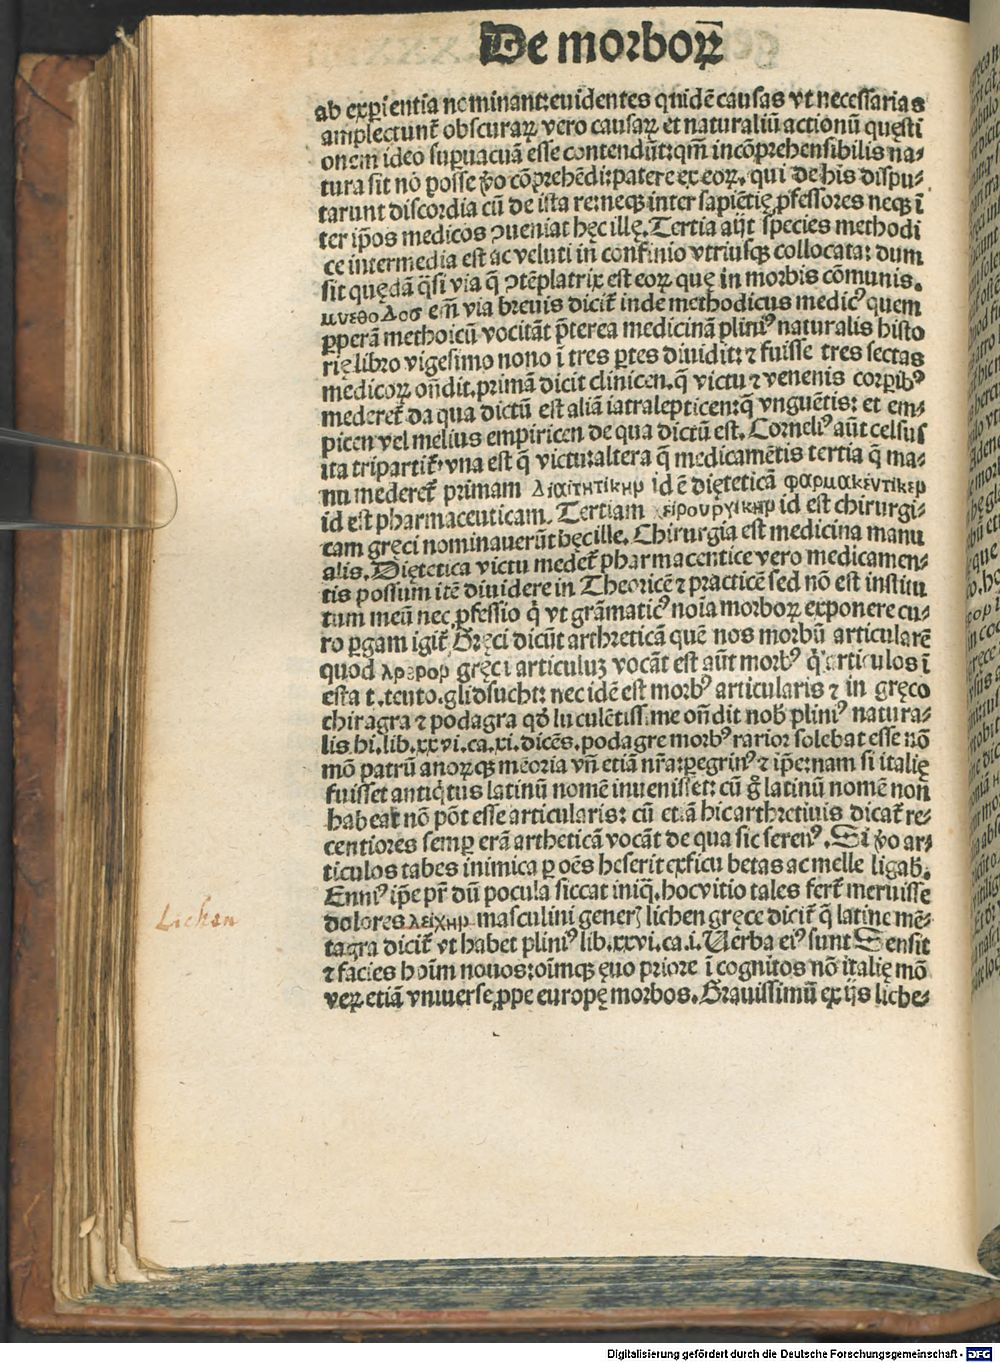 De morboꝝ
ab exꝑientia nominant: euidentes quidē causas vt necessarias
amplectunt᷑ obscuraꝝ vero causaꝝ et naturaliū actionū quęsti
onem ideo suꝑuacuā esse contendūt: qm̄ incōprehensibilis na⸗
tura sit nō posse ꝟo cōprehēdi: patere ex eoꝝ, qui de his dispu⸗
tarunt discordia cū de ista re: neqꝫ inter sapiētię ꝓfessores neqꝫ ī
ter ip̄os medicos ꝯueniat hęc ille. Tertia aijt species methodi
ce intermedia est ac veluti in confinio vtriusqꝫ collocata: dum
sit quędā q̄si via q̄ ꝯtēplatrix est eoꝝ que in morbis cōmunis.
μυεθοΔοσ em̄ via breuis dicit᷑ inde methodicus medicꝰ quem
ꝑperā methoicū vocitāt p̄terea medicinā pliniꝰ naturalis histo
rię libro vigesimo nono ī tres ꝑtes diuidit: ⁊ fuisse tres sectas
medicoꝝ on̄dit. primā dicit clinicen. q̄ victu ⁊ venenis corꝑibꝰ
mederet᷑ da qua dictū est aliā iatralepticen: q̄ vnguētis: et em⸗
picen vel melius empiricen de qua dictū est. Corneliꝰ aūt celsus
ita tripartit᷑, vna est q̄ victu: altera q̄ medicamētis tertia q̄ ma⸗
nu mederet᷑ primam Διαιτητικηρ id ē diętetica φαρμακευτικερ
id est pharmaceuticam. Tertiam χειρουργικηρ id est chirurgi⸗
cam gręci nominauerūt hęc ille. Chirurgia est medicina manu
alis. Diętetica victu medet᷑ pharmacentice vero medicamen⸗
tis possum itē diuidere in Theoricē ⁊ practicē sed nō est institu
tum meū nec ꝓfessio q̇ vt grāmaticꝰ noīa morboꝝ exponere cu⸗
ro ꝑgam igit᷑ Gręci dicūt arthreticā quē nos morbū articularē
quod αρερορ gręci articuluꝫ vocāt est aūt morbꝰ q̇ articulos ī
festa t. teuto. glidsucht: nec idē est morbꝰ articularis ⁊ in gręco
chiragra ⁊ podagra qđ luculētissime on̄dit nob̄ pliniꝰ natura⸗
lis. hi. lib. xxvi. ca. xi. dicēs. podagre morbꝰ rarior solebat esse nō
mō patrū auoꝝqꝫ mēoria vn̄ etiā nr̄a: ꝑegrinꝰ ⁊ ip̄e: nam si italię
fuisset antiq̇tus latinū nomē inuenisset: cū g̊ latinū nomē non
habeat nō pōt esse articularis: cū etiā hic arthretiuis dicat᷑ re⸗
centiores semꝑ erā artheticā vocāt de qua sic serenꝰ. Si ꝟo ar⸗
ticulos tabes inimica ꝑ oēs heserit exficu betas ac melle ligab̄.
Enniꝰ ip̄e pr̄ dū pocula siccat iniq̄. hoc vitio tales fert᷑ meruisse
dolores λειχηρ masculini generꝭ lichen gręce dicit᷑ q̄ latine mē⸗
tagra dicit᷑ vt habet pliniꝰ lib. xxvi. ca. i. Verba eiꝰ sunt Sensit
⁊ facies hoīm nouos: oīmqꝫ ęuo priore ī cognitos nō italię mō
veꝝ etiā vniuerse ꝓpe europę morbos. Grauissimū ex ijs liche⸗
Lichen
Digitalisierung gefördert durch die Deutsche Forschungsgemeinschaft - DFG